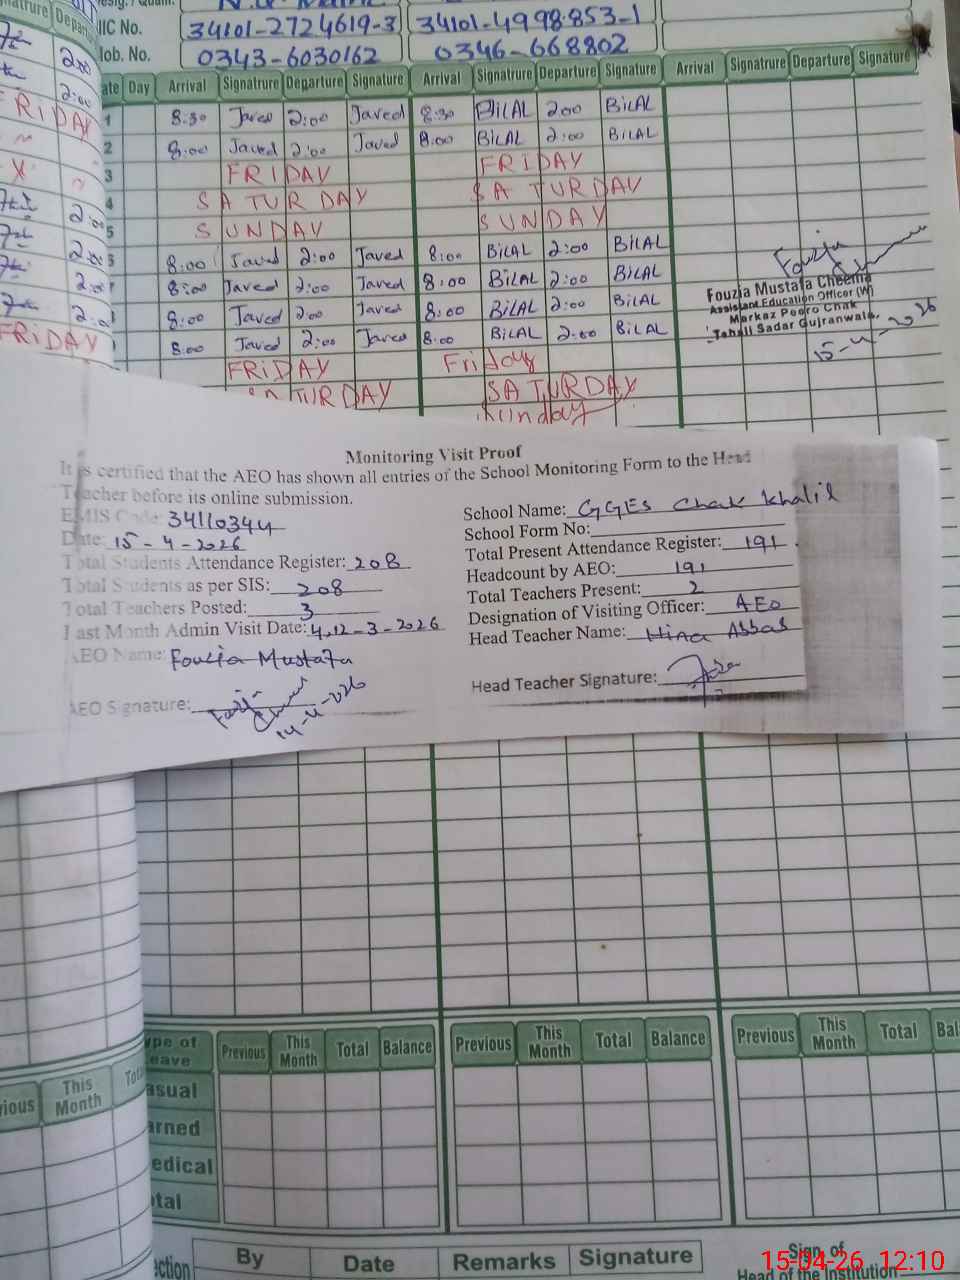 NIC No. 34101-2724619-3 34101-4998853-1
Mob. No. 0343-6030162 0346-668802
Day Arrival Signatrure Departure Signature Arrival Signatrure Departure Signature Arrival Signatrure Departure Signature
1 8:30 Javed 2:00 Javed 8:30 BiLAL 200 BiLAL
2 8:00 Javed 2:00 Javed 8:00 BiLAL 2:00 BiLAL
3 FRIDAY FRIDAY
4 SATURDAY SATURDAY
5 SUNDAY SUNDAY
8:00 Javed 2:00 Javed 8:00 BiLAL 2:00 BiLAL
8:00 Javed 2:00 Javed 8:00 BiLAL 2:00 BiLAL
8:00 Javed 2:00 Javed 8:00 BiLAL 2:00 BiLAL
8:00 Javed 2:00 Javed 8:00 BiLAL 2:00 BiLAL
FRIDAY Friday
SATURDAY
Sunday
Fouzia Mustafa Cheema
Assistant Education Officer (W)
Markaz Peoro Chak
Tehsil Sadar Gujranwala.
15-4-2026
Monitoring Visit Proof
It is certified that the AEO has shown all entries of the School Monitoring Form to the Head
Teacher before its online submission.
EMIS Code: 34110344
Date: 15-4-2026
Total Students Attendance Register: 208
Total Students as per SIS: 208
Total Teachers Posted: 3
Last Month Admin Visit Date: 4,12-3-2026
AEO Name: Fouzia Mustafa
AEO Signature:
14-4-2026
School Name: GGES Chak Khalil
School Form No:
Total Present Attendance Register: 191
Headcount by AEO: 191
Total Teachers Present: 2
Designation of Visiting Officer: AEO
Head Teacher Name: Hina Abbas
Head Teacher Signature:
Type of Leave Previous This Month Total Balance Previous This Month Total Balance Previous This Month Total Bal
Casual
Earned
Medical
Total
By Date Remarks Signature
Sign. of
Head of the Institution
15-04-26 12:10